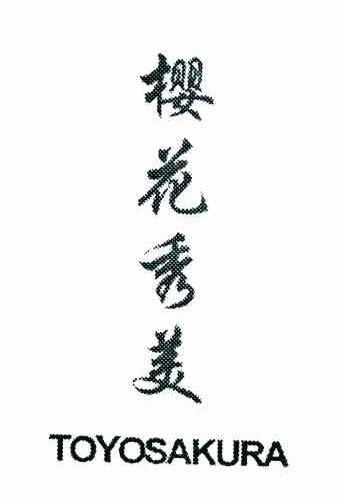 櫻花秀美
TOYOSAKURA